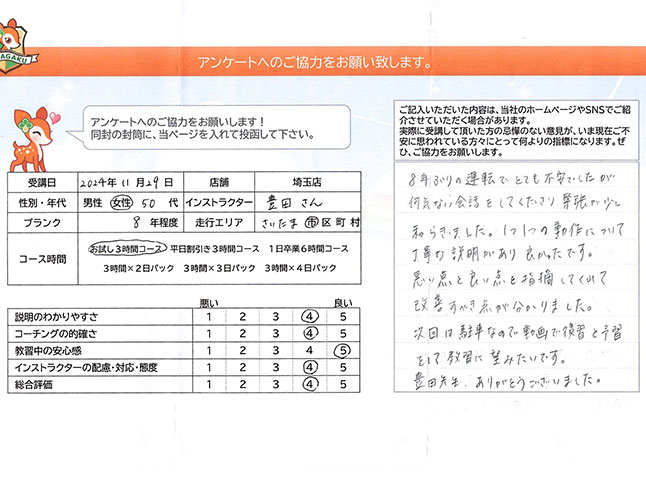 AGAKU
アンケートへのご協力をお願い致します。
アンケートへのご協力をお願いします！
同封の封筒に、当ページを入れて投函して下さい。
ご記入いただいた内容は、当社のホームページやSNSでご紹
介させていただく場合があります。
実際に受講して頂いた方の忌憚のない意見が、いま現在ご不
安に思われている方々にとって何よりの指標になります。ぜ
ひ、ご協力をお願いします。
受講日 2024年11月29日 店舗 埼玉店
性別・年代 男性 女性 50 代 インストラクター 豊田 さん
ブランク 8 年程度 走行エリア さいたま 市区町村
コース時間 お試し3時間コース 平日割引き3時間コース 1日卒業6時間コース
3時間×2日パック 3時間×3日パック 3時間×4日パック
悪い 良い
説明のわかりやすさ 1 2 3 4 5
コーチングの的確さ 1 2 3 4 5
教習中の安心感 1 2 3 4 5
インストラクターの配慮・対応・態度 1 2 3 4 5
総合評価 1 2 3 4 5
8年ぶりの運転でとても不安でしたが
何気ない会話をしてくださり緊張が少し
和らぎました。1つ1つの動作について
丁寧な説明があり良かったです。
悪い点と良い点を指摘してくれて
改善すべき点が分かりました。
次回は駐車なので動画で復習と予習
をして教習に望みたいです。
豊田先生、ありがとうございました。